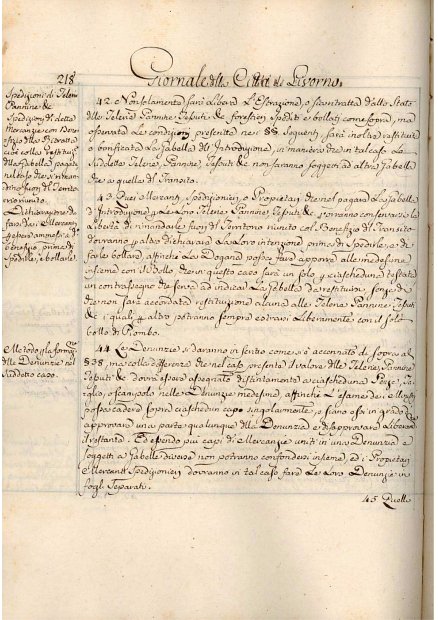 218
Giornale della Città di Livorno.
Spedizioni di Telerie
Pannine &
Spedizioni della
Mercanzia con Bene-
fizio della
colla restituzi-
Gabella pagata
nel caso
del Terri-
torio riunito.
Dichiarazione da
farsi dai Mercanti
per essere ammessi al
benefizio, prima di
spedire, e bollare.
Metodo, e la forma
delle Denunzie nel
suddetto caso.
42. e Non solamente sarà Libera L'Estrazione, o sia sortita dallo Stato
delle Telerie, Pannine, Tessuti & forestieri spediti e bollati come sopra, ma
osservate Le condizioni prescritte nei §§ seguenti, sarà inoltre restituita
o bonificata La Gabella d'Introduzione, in maniera che in tal caso Le
suddette Telerie, Pannine, Tessuti & non saranno soggetti ad altra Gabella
che a quella di Transito.
43. Quei Mercanti, Spedizionieri, o Proprietari che nel pagare La Gabella
d'Introduzione per Le Loro Telerie, Pannine, Tessuti & vorranno conservarsi La
Libertà di rimandarle fuori del Territorio riunito col Benefizio del Transito
dovranno per altro dichiarare La Loro intenzione prima di Spedirle, e di
farle bollare, affinchè La Dogana possa fare apporre alle medesime
insieme con il Bollo, che in questo caso sarà un solo per ciascheduna testata
un contrassegno che serva ad indicar La Gabella da restituirsi, senza di
che non sarà accordata restituzione alcuna alle Telerie, Pannine, Tessuti
& i quali per altro potranno sempre estrarsi Liberamente con il solo
bollo di Piombo.
44. Le Denunzie si daranno in scritto come si è accennato di sopra al
§ 38, ma colla differenza che nel caso presente il valore delle Telerie, Pannine
Tessuti & dovrà essere assegnato distintamente a ciascheduna Pezza, Ta-
glio, o scampolo nelle Denunzie medesime, affinchè L'esame dei Ministri
possa cadere sopra ciaschedun capo singolarmente, e siano essi in grado di
approvare una parte qualunque della Denunzia e disapprovare Liberamente
il restante. Ed essendo più capi di Mercanzie uniti in una Denunzia e
soggetti a Gabelle diverse non potranno confondersi insieme, ed i Proprietari
Mercanti Spedizionieri dovranno in tal caso fare Le Loro Denunzie in
fogli Separati.
45. Quelle